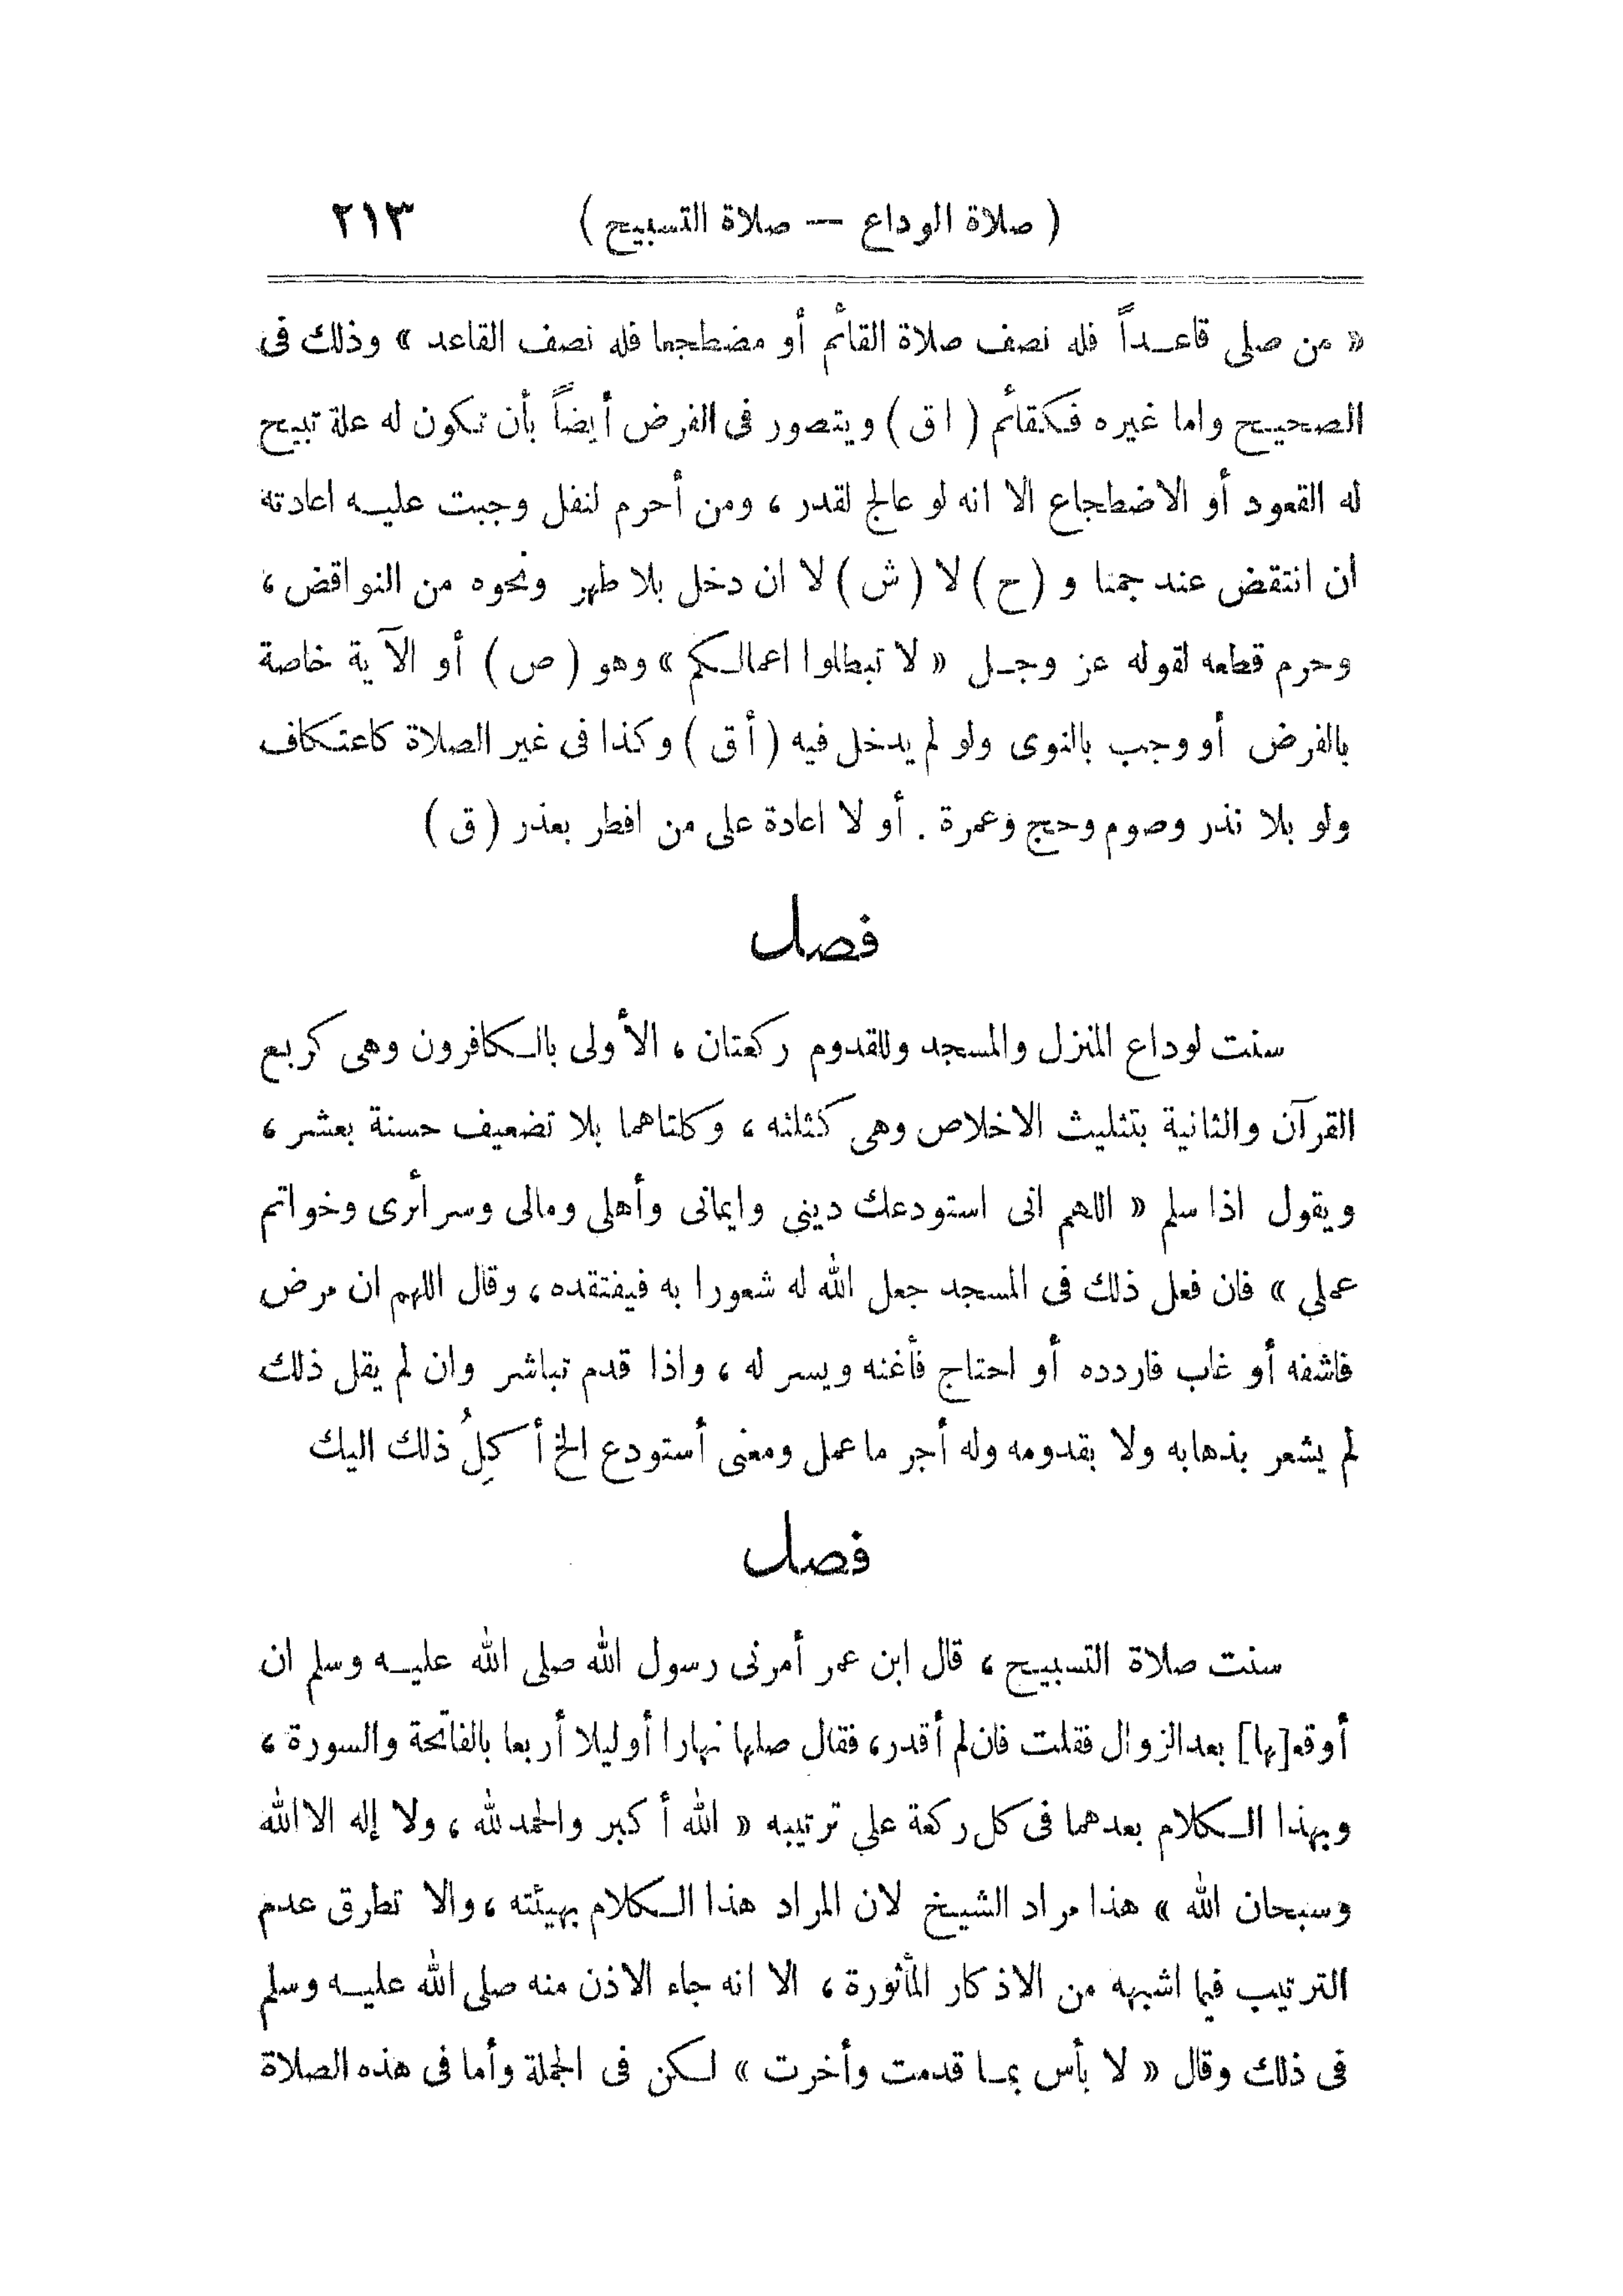 ( صلاة الوداع — صلاة التسبيح ) ٢١٣
« من صلى قاعـداً فله نصف صلاة القائم أو مضطجعا فله نصف القاعد » وذلك فى
الصحيح واما غيره فكقائم ( اق ) ويتصور فى الفرض أيضاً بأن تكون له علة تبيح
له القعود أو الاضطجاع الا انه لو عالج لقدر ، ومن أحرم لنفل وجبت عليـه اعادته
ان انتقض عند جمنا و ( ح ) لا ( ش ) لا ان دخل بلا طهر ونحوه من النواقض ،
وحرم قطعه لقوله عز وجـل « لا تبطلوا اعمالـكم » وهو ( ص ) أو الآية خاصة
بالفرض أو وجب بالنوى ولو لم يدخل فيه ( أق ) وكذا فى غير الصلاة كاعتكاف
ولو بلا نذر وصوم وحج وعمرة . أو لا اعادة على من افطر بعذر ( ق )
فصل
سنت لوداع المنزل والمسجد وللقدوم ركعتان ، الأولى بالـكافرون وهى كربع
القرآن والثانية بتثليث الاخلاص وهى كثلثه ، وكلتاهما بلا تضعيف حسنة بعشر ،
ويقول اذا سلم « اللهم انى استودعك دينى وايمانى وأهلى ومالى وسرائرى وخواتم
عملى » فان فعل ذلك فى المسجد جعل الله له شعورا به فيفتقده ، وقال اللهم ان مرض
فاشفه أو غاب فاردده أو احتاج فأغنه ويسر له ، واذا قدم تباشر وان لم يقل ذلك
لم يشعر بذهابه ولا بقدومه وله أجر ما عمل ومعنى أستودع الخ أكِلُ ذلك اليك
فصل
سنت صلاة التسبيـح ، قال ابن عمر أمرنى رسول الله صلى الله عليـه وسلم ان
أوقع[ها] بعد الزوال فقلت فان لم أقدر، فقال صلها نهارا أو ليلا أربعا بالفاتحة والسورة ،
وبهذا الـكلام بعدهما فى كل ركعة على ترتيبه « الله أكبر والحمد لله ، ولا إله الا الله
وسبحان الله » هذا مراد الشيـخ لان المراد هذا الـكلام بهيئته ، والا تطرق عدم
الترتيب فيما اشبهه من الاذكار المأثورة ، الا انه جاء الاذن منه صلى الله عليـه وسلم
فى ذلك وقال « لا بأس بمـا قدمت وأخرت » لـكن فى الجملة وأما فى هذه الصلاة